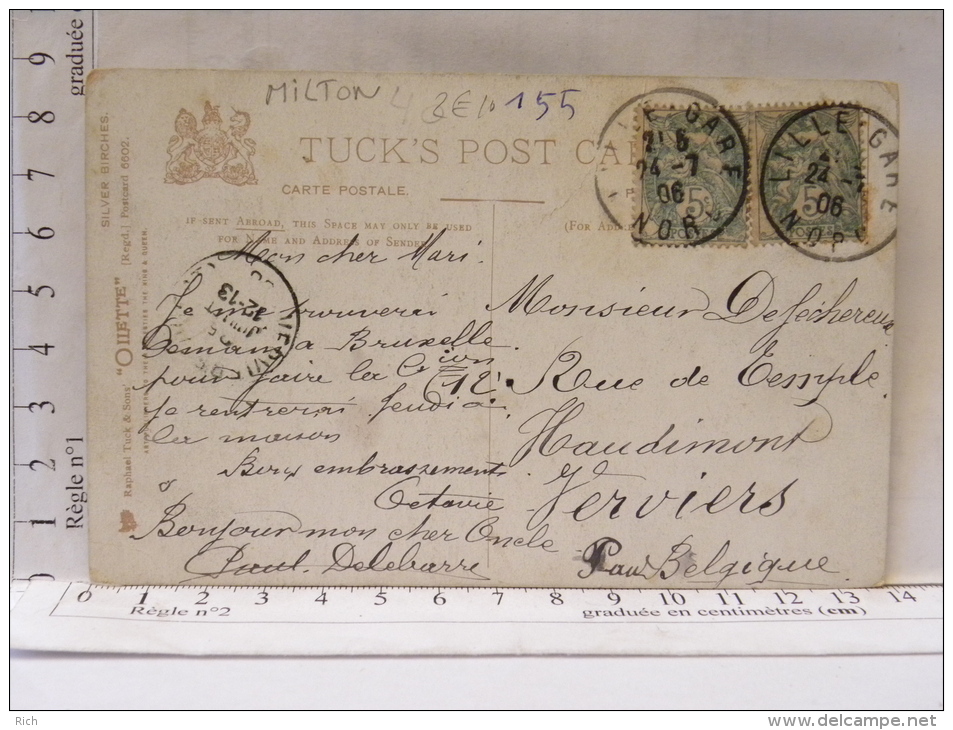 graduée
9
8
7
6
5
4
3
2
1
Règle n°1
MILTON 4 155
TUCK'S POST CAR
CARTE POSTALE.
IF SENT ABROAD, THIS SPACE MAY ONLY BE USED
FOR NAME AND ADDRESS OF SENDER
(FOR ADDRE
SILVER BIRCHES.
[Regd.] Postcard 6602.
Raphael Tuck & Sons' "OILETTE"
LILLE GARE
24 -7
06
NORD
5c
POSTES
LILLE GARE
24
06
NORD
5c
POSTES
12-13
Mon cher Mari.
Je me trouverai
Demain a Bruxelle
pour faire les
Je rentrerai Jeudi a
la maison
Bons embrassements
Octavie
Bonjour mon cher Oncle
Paul. Delebarre
Monsieur Deféchereux
Rue de Temple
Haudimont
Verviers
Par Belgique
0 1 2 3 4 5 6 7 8 9 10 11 12 13 14
Règle n°2
graduée en centimètres (cm)
Rich
http://www.delcampe.net